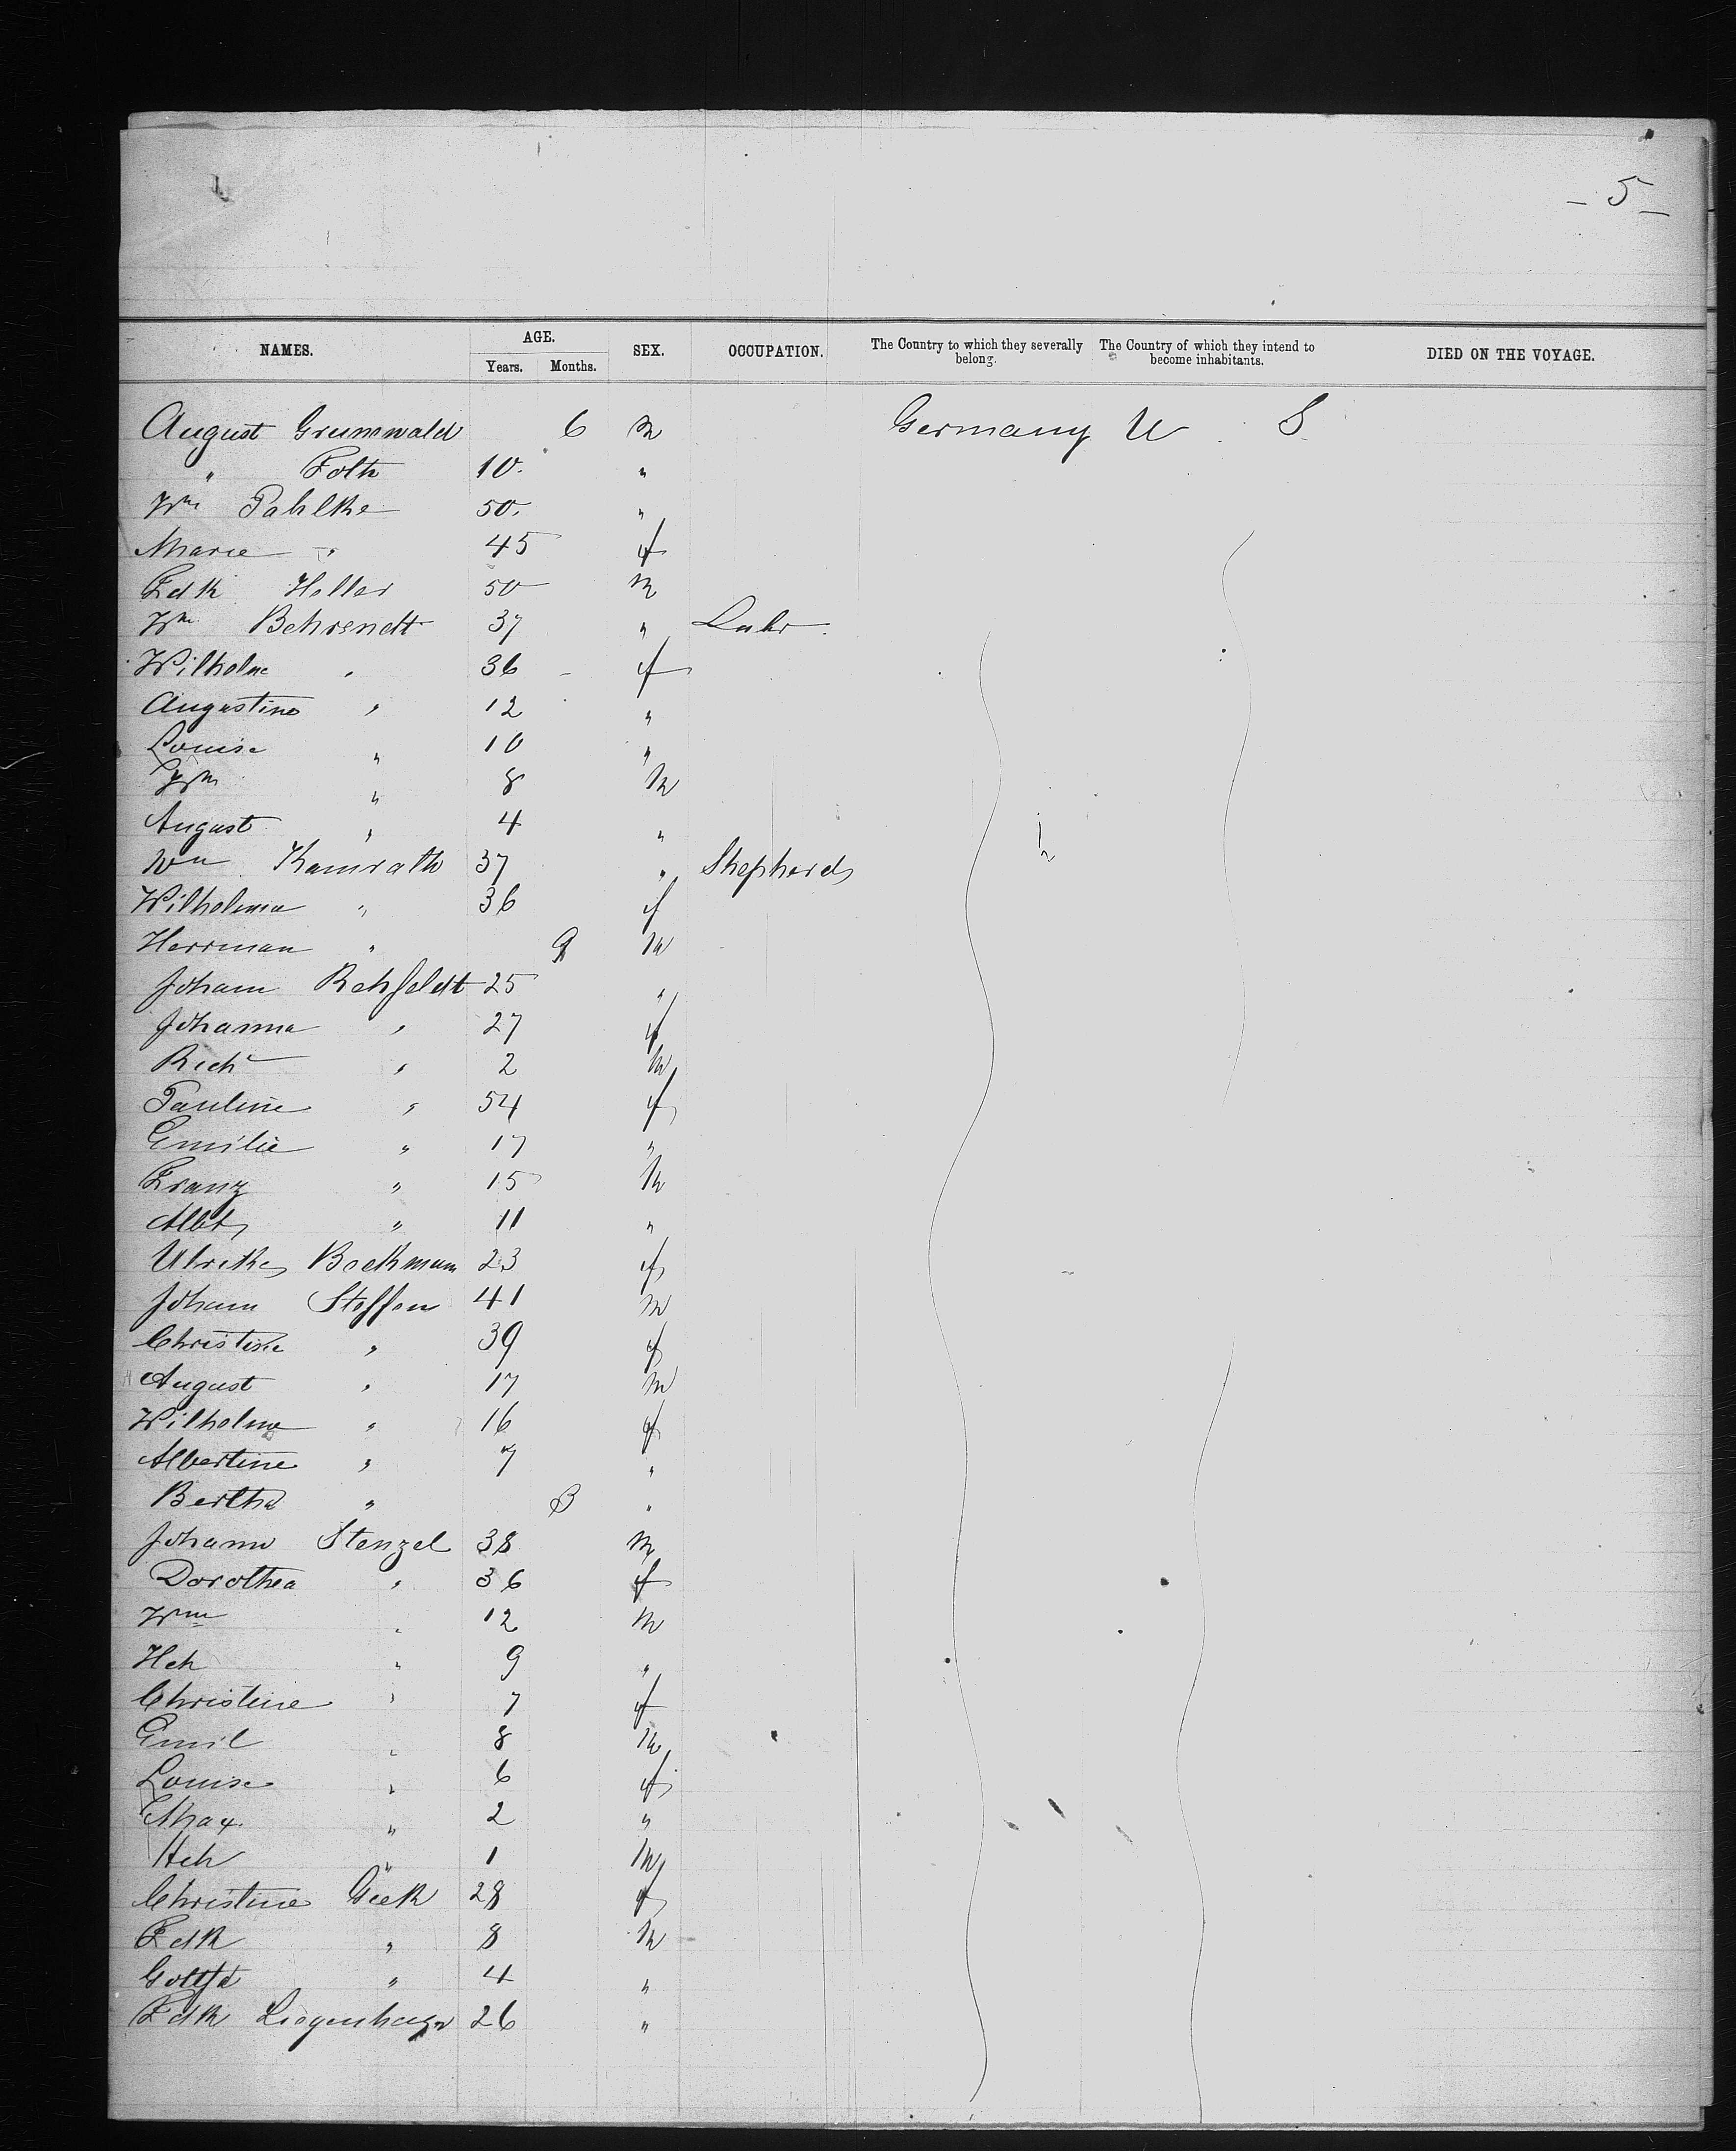 - 5 -
NAMES. AGE. SEX. OCCUPATION. The Country to which they severally belong. The Country of which they intend to become inhabitants. DIED ON THE VOYAGE.
Years. Months.
August Grunwald 6 m Germany U. S.
" Folth 10. "
Wm Pahlke 50. "
Marie " 45 f
Fdk Heller 50 m
Wm Behrendt 37 " Labr.
Wilhelme " 36 f
Augustine " 12 "
Louise " 10 "
Wm " 8 m
August " 4 "
Wm Kamrath 37 " Shepherd
Wilhelmia " 36 f
Herrman " 9 m
Johann Rehfeldt 25 "
Johanna " 27 f
Rich " 2 m
Pauline " 54 f
Emilie " 17 "
Franz " 15 m
Albt " 11 "
Ulrike Boekmann 23 f
Johann Steffen 41 m
Christine " 39 f
August " 17 m
Wilhelme " 16 f
Albertine " 7 "
Bertha " 3 "
Johann Stenzel 38 m
Dorothea " 36 f
Wm " 12 m
Hch " 9 "
Christine " 7 f
Emil " 8 m
Louise " 6 f
Max " 2 "
Hch " 1 m
Christine Geek 28 f
Fdk " 8 m
Gottfd " 4 "
Fdk Liegenhagen 26 "